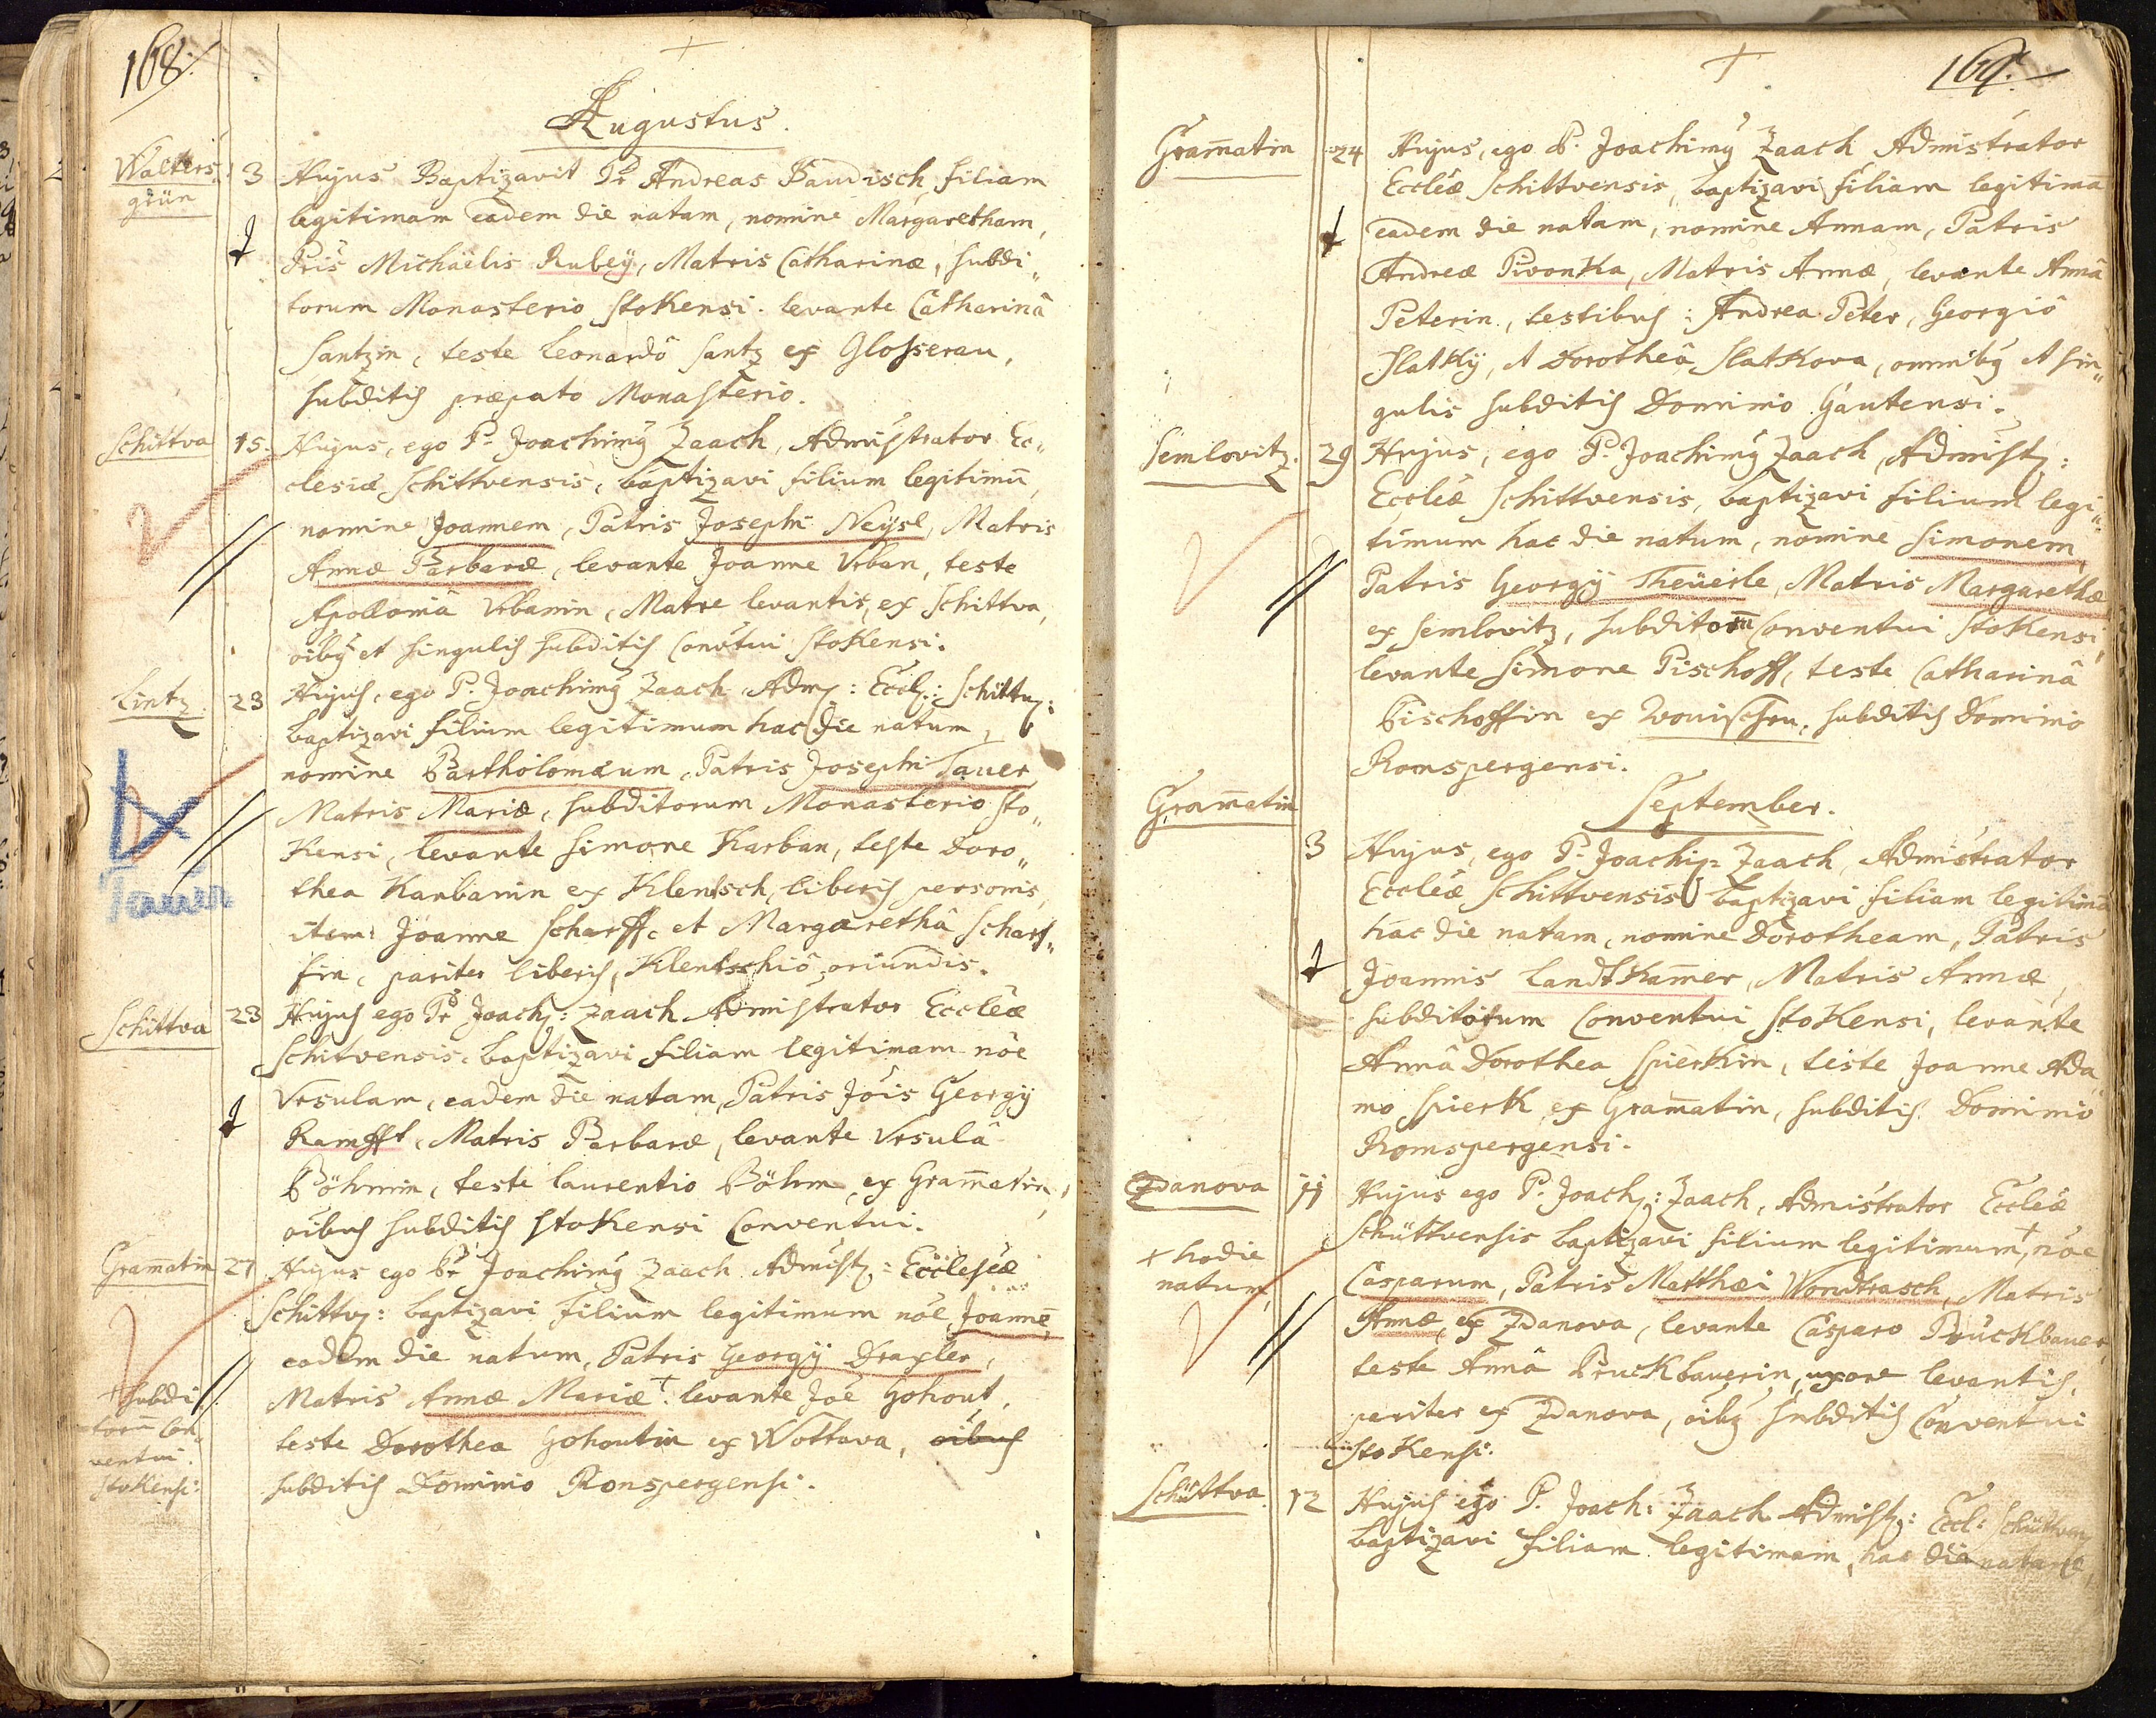 168.
Augustus.
Walters¦
grün
3 Hujus Baptizavit Pr Andreas Baudisch filiam
legitimam eadem die natam, nomine Margaretham,
Pris Michaëlis Rubeÿ, Matris Catharinæ, subdi„
torum Monasterio Stokensi. levante Catharinâ
Santzin, teste Leonardô Santz ex Glosserau,
subditis præfato Monasterio.
Schittva 15. Hujus, ego P. Joachimꝰ Zaach, Admistrator Ec„
clesiæ Schittvensis, baptizavi filium legitimū,
nomine Joannem, Patris Josephi Neÿsl, Matris
Annæ Barbaræ, levante Joanne Vrban, teste
Apolloniâ Vrbanin, Matre levantis, ex Schittva,
oibꝰ et singulis subditis Convtui Stokensi.
Lintz. 23 Hujus, ego P. Joachimꝰ Zaach Adm: Eccl: Schittv:
baptizavi filium legitimum hac die natum,
nomine Bartholomæum, Patris Josephi Tauer,
Matris Mariæ, subditorum Monasterio Sto„
kensi, levante Simone Karban, teste Doro„
thea Karbanin ex Klentsch, liberis personis,
item: Joanne Scharff, et Margarethâ Scharf„
fin, pariter liberis, Klentschiô oriundis.
Schittva 23 Hujus ego Pr Joach: Zaach Admistrator Eccleæ
Schitvensis, baptizavi filiam legitimam nõe
Vrsulam, eadem die natam, Patris Jõis Georgÿ
Ramfft, Matris Barbaræ, levante Vrsulâ
Böhmin, teste Laurentio Böhm, ex Gram̄atin,
oibus subditis Stokensi Conventui.
Gram̄atin 27 Hujus ego Pr Joachimꝰ Zaach Admist: Ecclesiæ
Schittv: baptizavi filium legitimum nõe Joannē,
eadem die natum, Patris Georgÿ Draxler,
Matris Annæ Mariæ + levante Jõe Hohout,
+ subdi
torū Con„
ventui
Stokensi:
teste Dorothea Hohoutin ex Wottawa, oibus
subditis Dominio Ronspergensi.
169.
Gram̄atin 24 Hujus, ego P. Joachimꝰ Zaach Admistrator
Eccleæ Schittvensis, baptizavi filiam legitimā
eadem die natam, nomine Annam, Patris
Andreæ Pivonka, Matris Annæ, levante Annâ
Peterin, testibus: Andrea Peter, Georgiô
Slatkÿ, & Dorotheâ Slatkova, omnibꝰ & sin„
gulis subditis Dominio Hautensi.
Semlovitz. 29 Hujus, ego P. Joachimꝰ Zaach, Admist:
Eccleæ Schittvensis, baptizavi filium legi„
timum hac die natum, nomine Simonem,
Patris Georgÿ Theüerle, Matris Margarethæ
ex Semlovitz, subditorū Conventui Stokensi,
levante Simone Pischoff, teste Catharinâ
Bischoffin ex Zvouischen, subditis Dominio
Romspergensi.
September.
Gram̄atin
3 Hujus, ego P. Joachi: Zaach, Admistrator
Eccleæ Schittvensis baptizavi filiam legitimā
hac die natam, nomine Dorotheam, Patris
Joannis Landtkam̄er, Matris Annæ,
subditorum Conventui Stokensi, levante
Annâ Dorothea Spierkin, teste Joanne Ada„
mo Spierk, ex Gram̄atin, subditis Dominio
Romspergensi.
Zdanova 11 Hujus ego P. Joach: Zaach, Admistrator Eccleæ
Schüttvensis baptizavi filium legitimum,+ nõe
+ hodie
natum,
Casparum, Patris Matthæi Wondrasch, Matris
Annæ, ex Zdanova, levante Casparo Pruckbauer,
teste Annâ Pruckbauerin, uxore levantis,
pariter ex Zdanova, oibꝰ subditis Conventui
Stokensi.
Schüttva 12 Hujus ego P. Joach: Zaach Admist: Eccl: Schüttven:
baptizavi filiam legitimam, hac die natam,